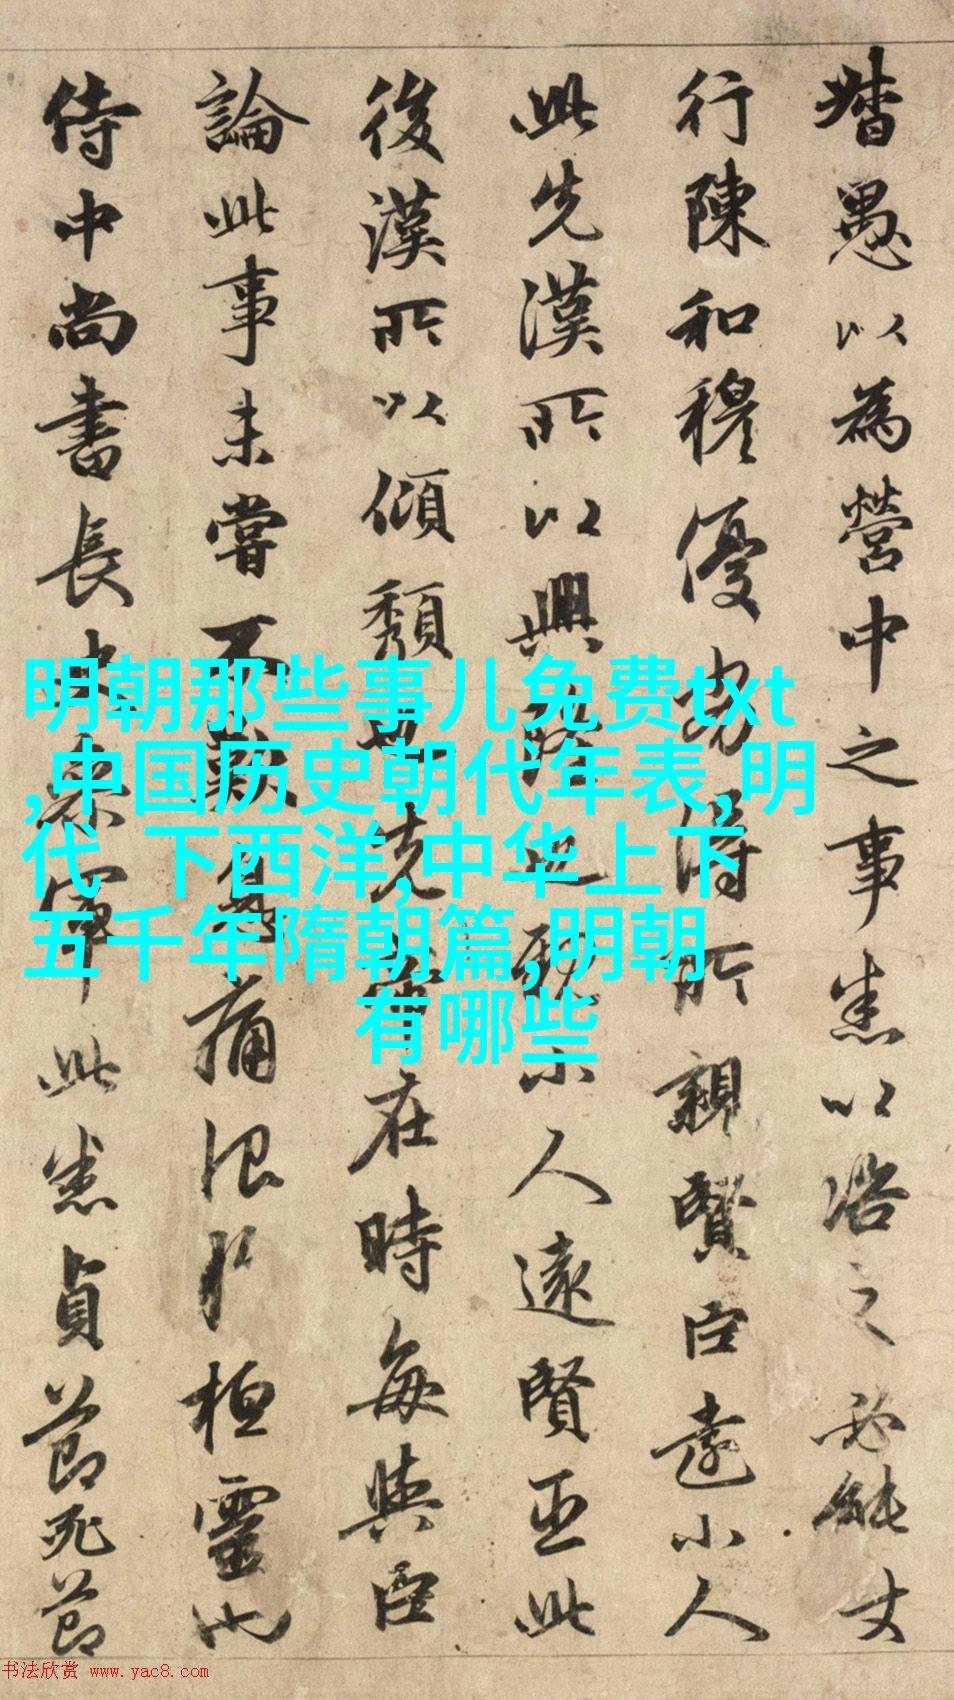 督愚以為營中之事悉以咨之必能使
行陳和穆優劣得所親賢臣遠小人
此先漢所以興隆也親小人遠賢臣此
後漢所以傾頹也先帝在時每與臣
論此事未嘗不歎息痛恨於桓靈也
侍中尚書長史參軍此悉貞節死節
明朝那些事儿免费txt
,中国历史朝代年表,明
代 下西洋,中华上下
五千年隋朝篇,明朝
有哪些
书法欣赏 www.yac8.com